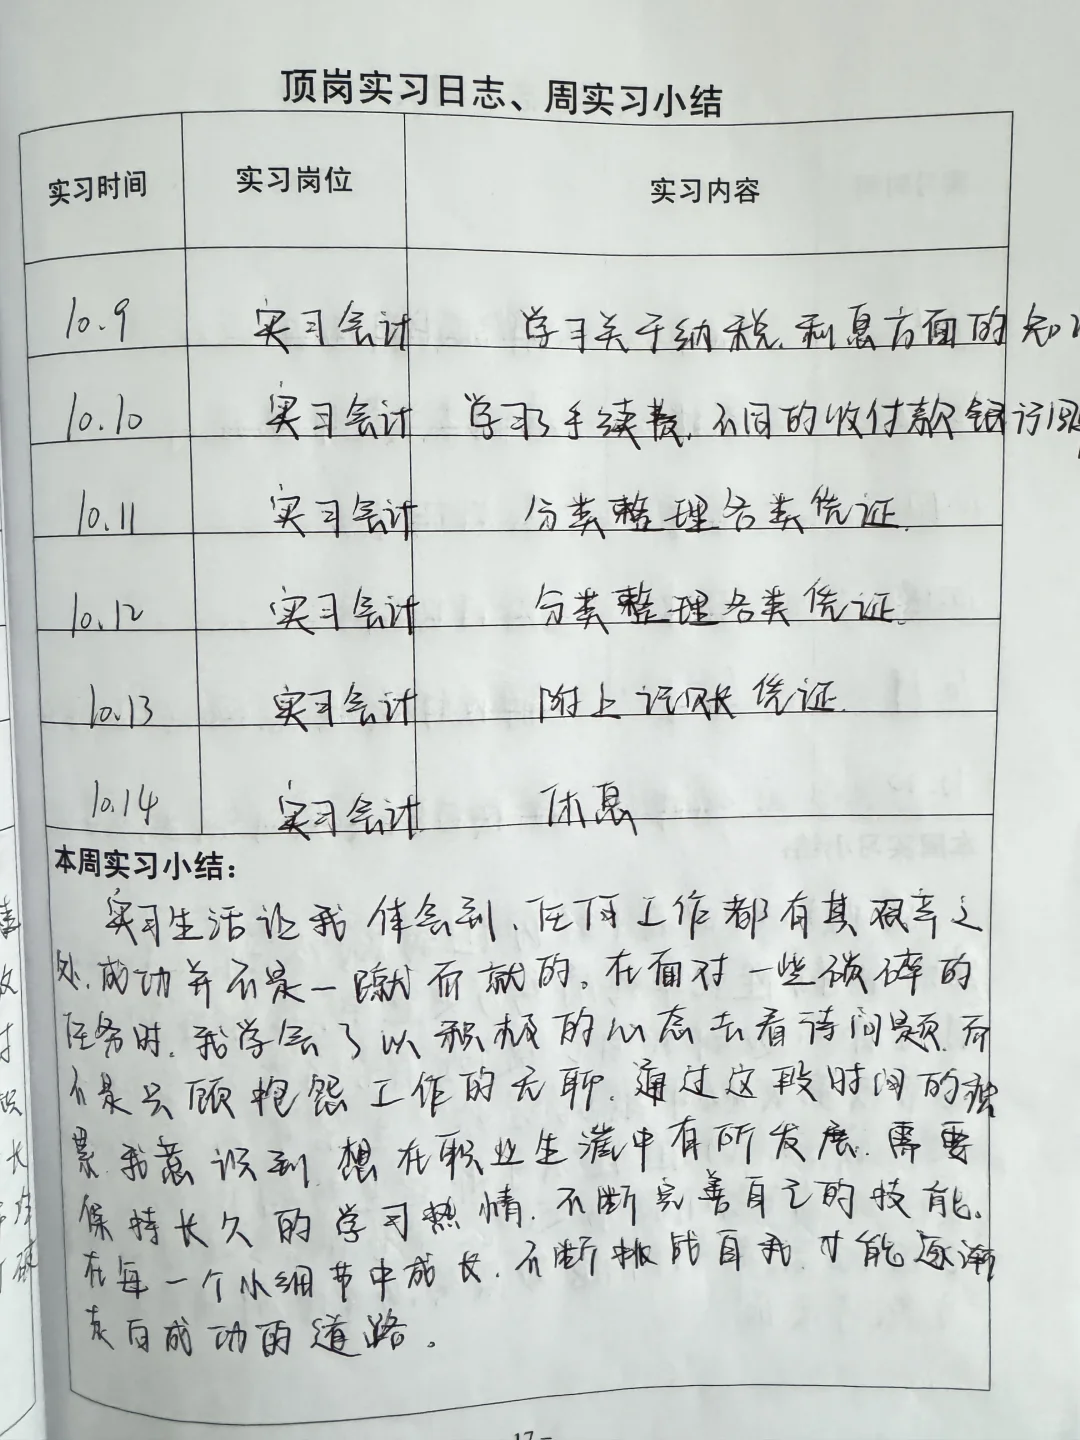 顶岗实习日志、周实习小结
实习时间 实习岗位 实习内容
10.9 实习会计 学习关于纳税、利息方面的知
10.10 实习会计 学习了手续费、不同的收付款银行
10.11 实习会计 分类整理各类凭证.
10.12 实习会计 分类整理各类凭证.
10.13 实习会计 附上记账凭证.
10.14 实习会计 休息
本周实习小结：
实习生活让我体会到、任何工作都有其艰辛之
处,成功并不是一蹴而就的。在面对一些琐碎的
任务时.我学会了以积极的心态去看待问题.而
不是只顾抱怨工作的无聊.通过这段时间的积
累.我意识到.想在职业生涯中有所发展.需要
保持长久的学习热情.不断完善自己的技能。
在每一个小细节中成长.不断挑战自我.才能逐渐
走向成功的道路。
17